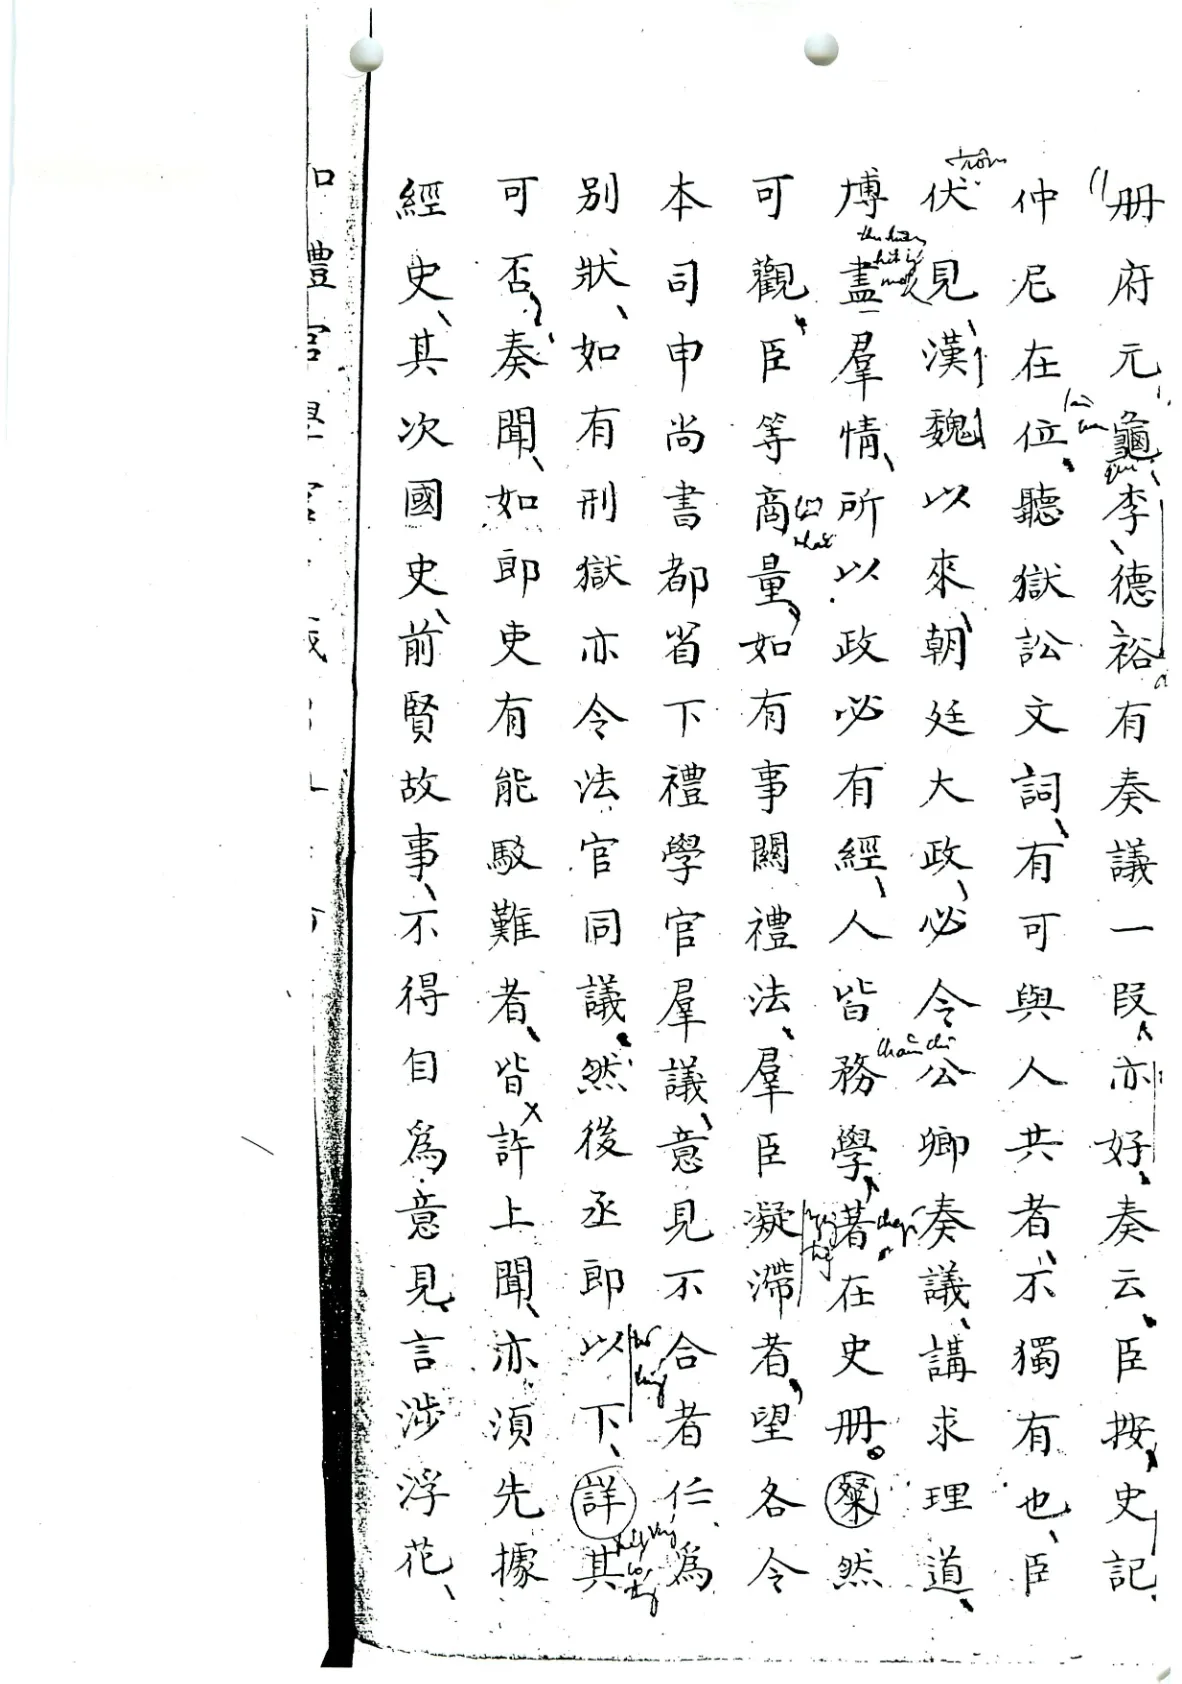 册府元龜李德裕有奏議一段亦好奏云臣按史記
仲尼在位聽獄訟文詞有可與人共者不獨有也臣
伏見漢魏以來朝廷大政必令公卿奏議講求理道
博盡羣情所以政必有經人皆務學著在史册粲然
可觀臣等商量如有事關禮法羣臣凝滯者望各令
本司申尚書都省下禮學官羣議意見不合者任爲
別狀如有刑獄亦令法官同議然後丞郎以下詳其
可否奏聞如郎吏有能駁難者皆許上聞亦須先據
經史其次國史前賢故事不得自爲意見言涉浮花
trôm